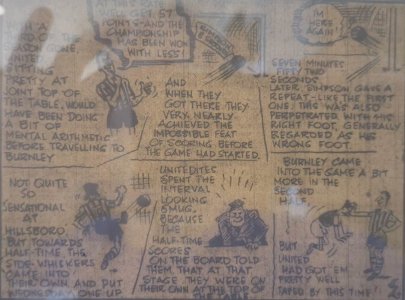 WELL GET 57
POINTS - AND THE
CHAMPIONSHIP
HAS BEEN WON
WITH LESS!
SEASON GONE,
UNITED
SITTING
PRETTY AT
JOINT TOP OF
THE TABLE, WOULD
HAVE BEEN DOING
A BIT OF
MENTAL ARITHMETIC
BEFORE TRAVELLING TO
BURNLEY
AND
WHEN THEY
GOT THERE THEY
VERY NEARLY
ACHIEVED THE
IMPOSSIBLE FEAT
OF SCORING BEFORE
THE GAME HAD STARTED.
I'M
HERE
AGAIN!
SEVEN MINUTES
FIFTY TWO
SECONDS
LATER, SIMPSON GAVE A
REPEAT - LIKE THE FIRST
ONE, THIS WAS ALSO
PERPETRATED WITH HIS
RIGHT FOOT, GENERALLY
REGARDED AS HIS
WRONG FOOT.
NOT QUITE
SO
SENSATIONAL
AT
HILLSBORO.
BUT TOWARDS
HALF-TIME THE
STOP-WHISKERS
CAME INTO
THEIR OWN AND PUT
WEDNESDAY ONE UP
UNITEDITES
SPENT THE
INTERVAL
LOOKING
SMUG,
BECAUSE
THE
HALF-TIME
SCORES
ON THE BOARD TOLD
THEM THAT AT THAT
STAGE THEY WERE ON
THEIR OWN AT THE TOP
BURNLEY CAME
INTO THE GAME A BIT
MORE IN THE
SECOND
HALF,
BUT
UNITED
HAD GOT 'EM
PRETTY WELL
TAPED BY THIS TIME!